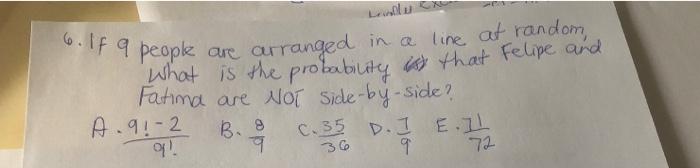 6. If 9 people are arranged in a line at random,
What is the probability that Felipe and
Fatima are NOT side-by-side?
A. 9!-2/9! B. 8/9 C. 35/36 D. 7/9 E. 71/72